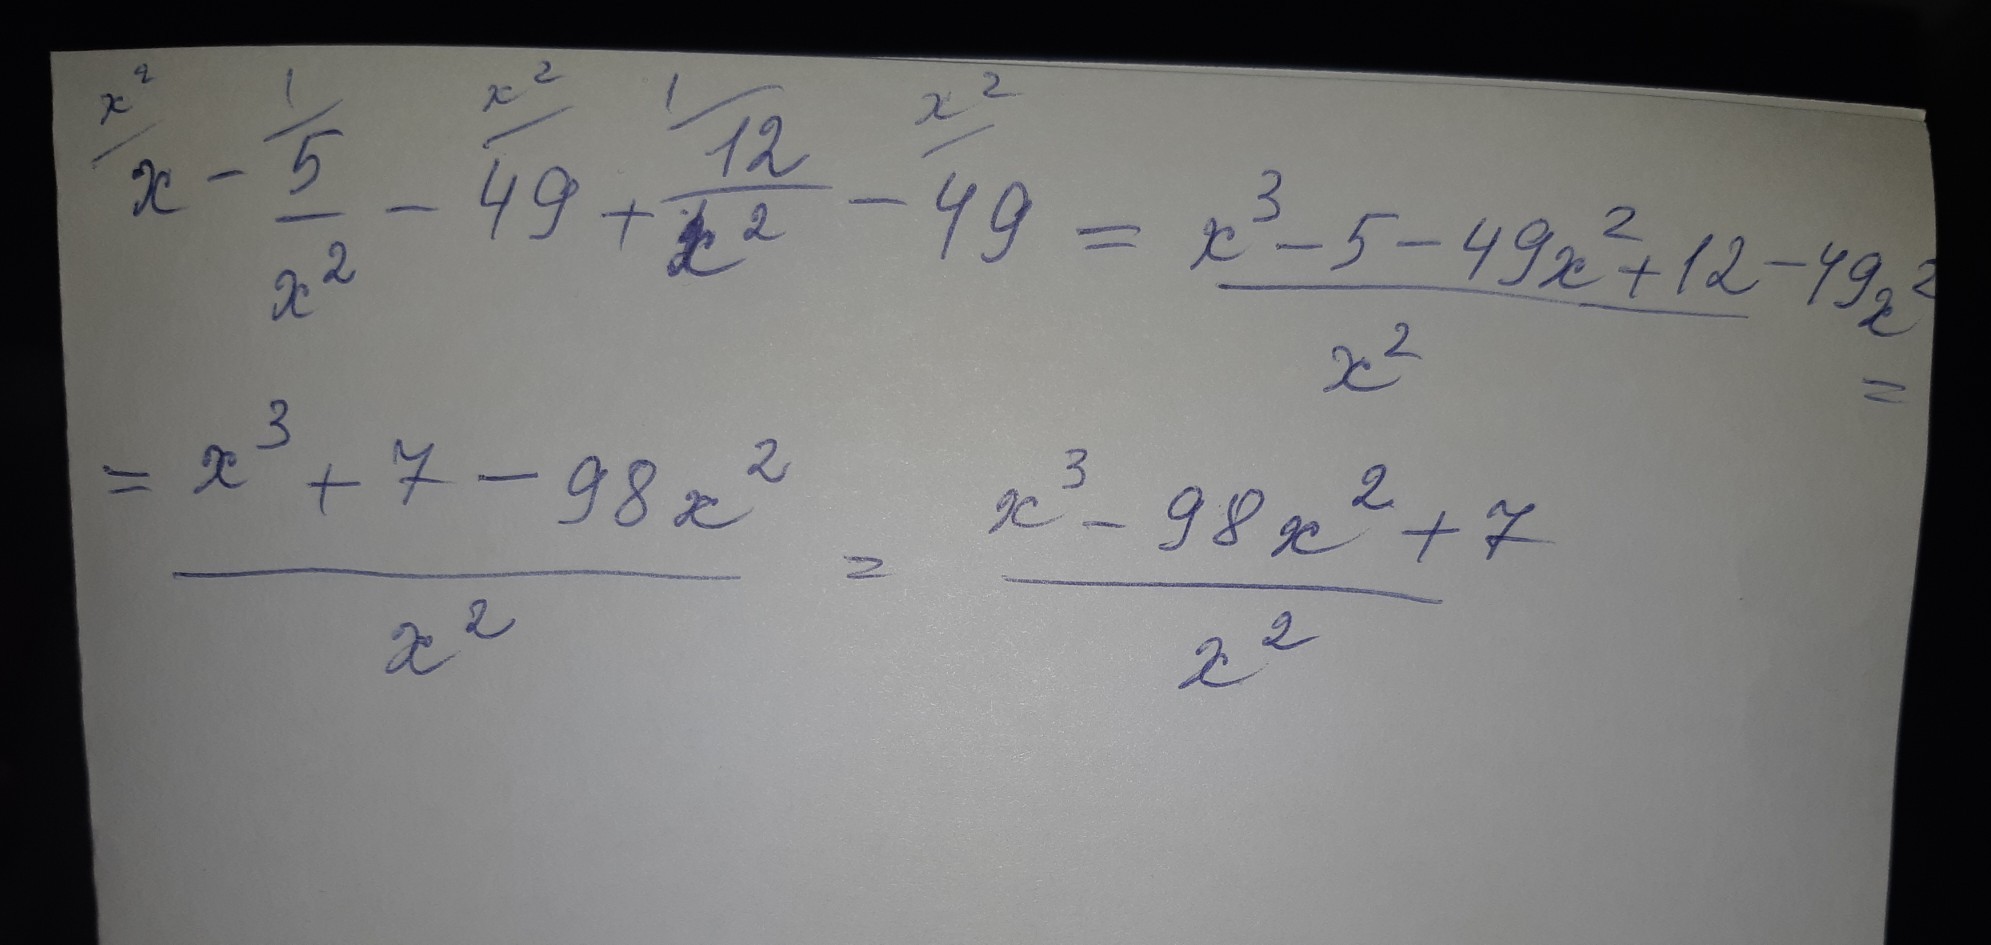 x²/ x - 1/ 5/x² - x²/ 49 + 1/ 12/x² - x²/ 49 = x³ - 5 - 49x² + 12 - 49x² / x² =
= x³ + 7 - 98x² / x² = x³ - 98x² + 7 / x²